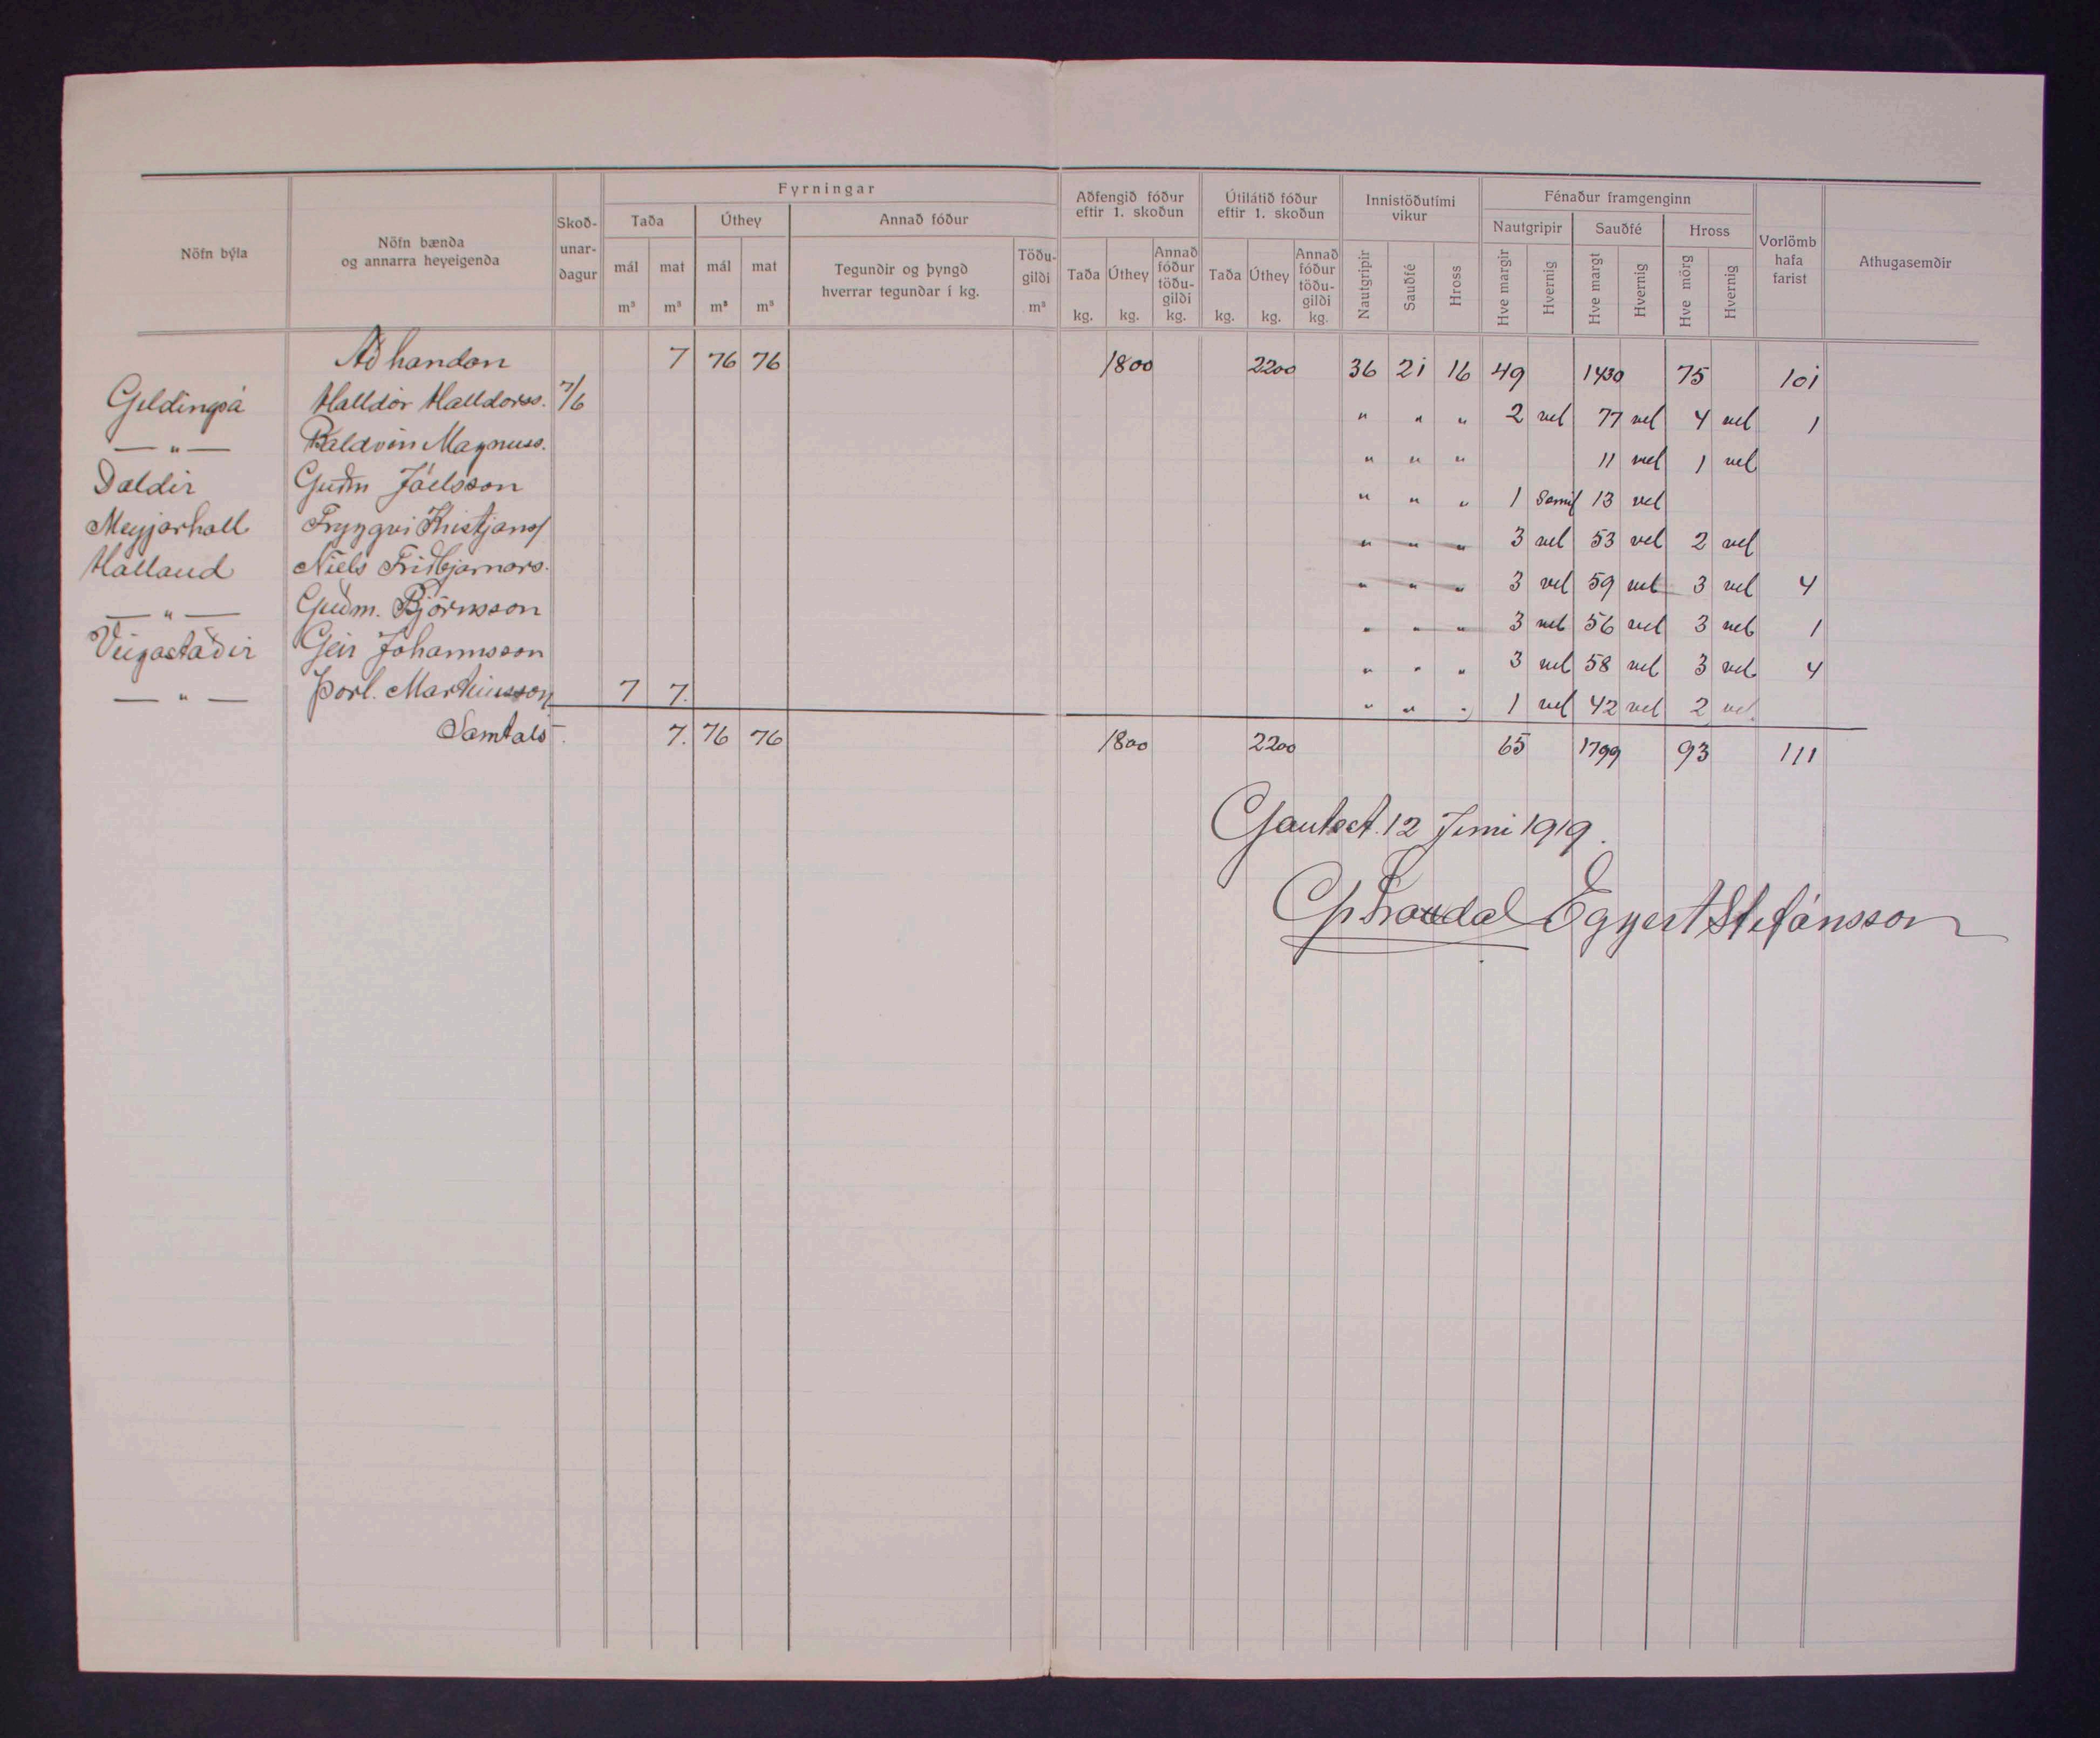 Fyrningar
Aðfengið fóður eftir 1. skoðun
Útilátið fóður eftir 1. skoðun
Innistöðutími vikur
Fénaður framgenginn
Nöfn býla
Nöfn bænda og annarra heyeigenda
Skoð-unar-dagur
Taða Úthey Annað fóður
Nautgripir Sauðfé Hross
Vorlömb hafa farist
Athugasemdir
mál m³ mat m³ mál m³ mat m³
Tegundir og þyngd hverrar tegundar í kg.
Töðu-gildi m³
Taða kg. Úthey kg. Annað fóður töðu-gildi kg.
Taða kg. Úthey kg. Annað fóður töðu-gildi kg.
Nautgripir Sauðfé Hross
Hve margir Hvernig Hve margt Hvernig Hve mörg Hvernig
Að handan 7 76 76 1800 2200 36 21 16 49 1430 75 101
Geldingsá Halldór Halldórss. 7/6 " " " 2 vel 77 vel 4 vel 1
— " — Baldvin Magnuss. " " " 11 vel 1 vel
Daldir Guðm Jóelsson " " " 1 13 vel
Meyjarhóll Tryggvi Kristjanss " " " 3 vel 53 vel 2 vel
Halland Niels Friðbjarnars. " " " 3 vel 59 vel 3 vel 4
— " — Guðm. Björnsson " " " 3 vel 56 vel 3 vel 1
Veigastaðir Geir Johannsson " " " 3 vel 58 vel 3 vel 4
— " — Þorl. Marteinsson 7 7. " " " 1 vel 42 vel 2 vel
Samtals. 7. 76 76 1800 2200 65 1799 93 111
Gautsst. 12 Juni 1919.
Eggert Stefánsson